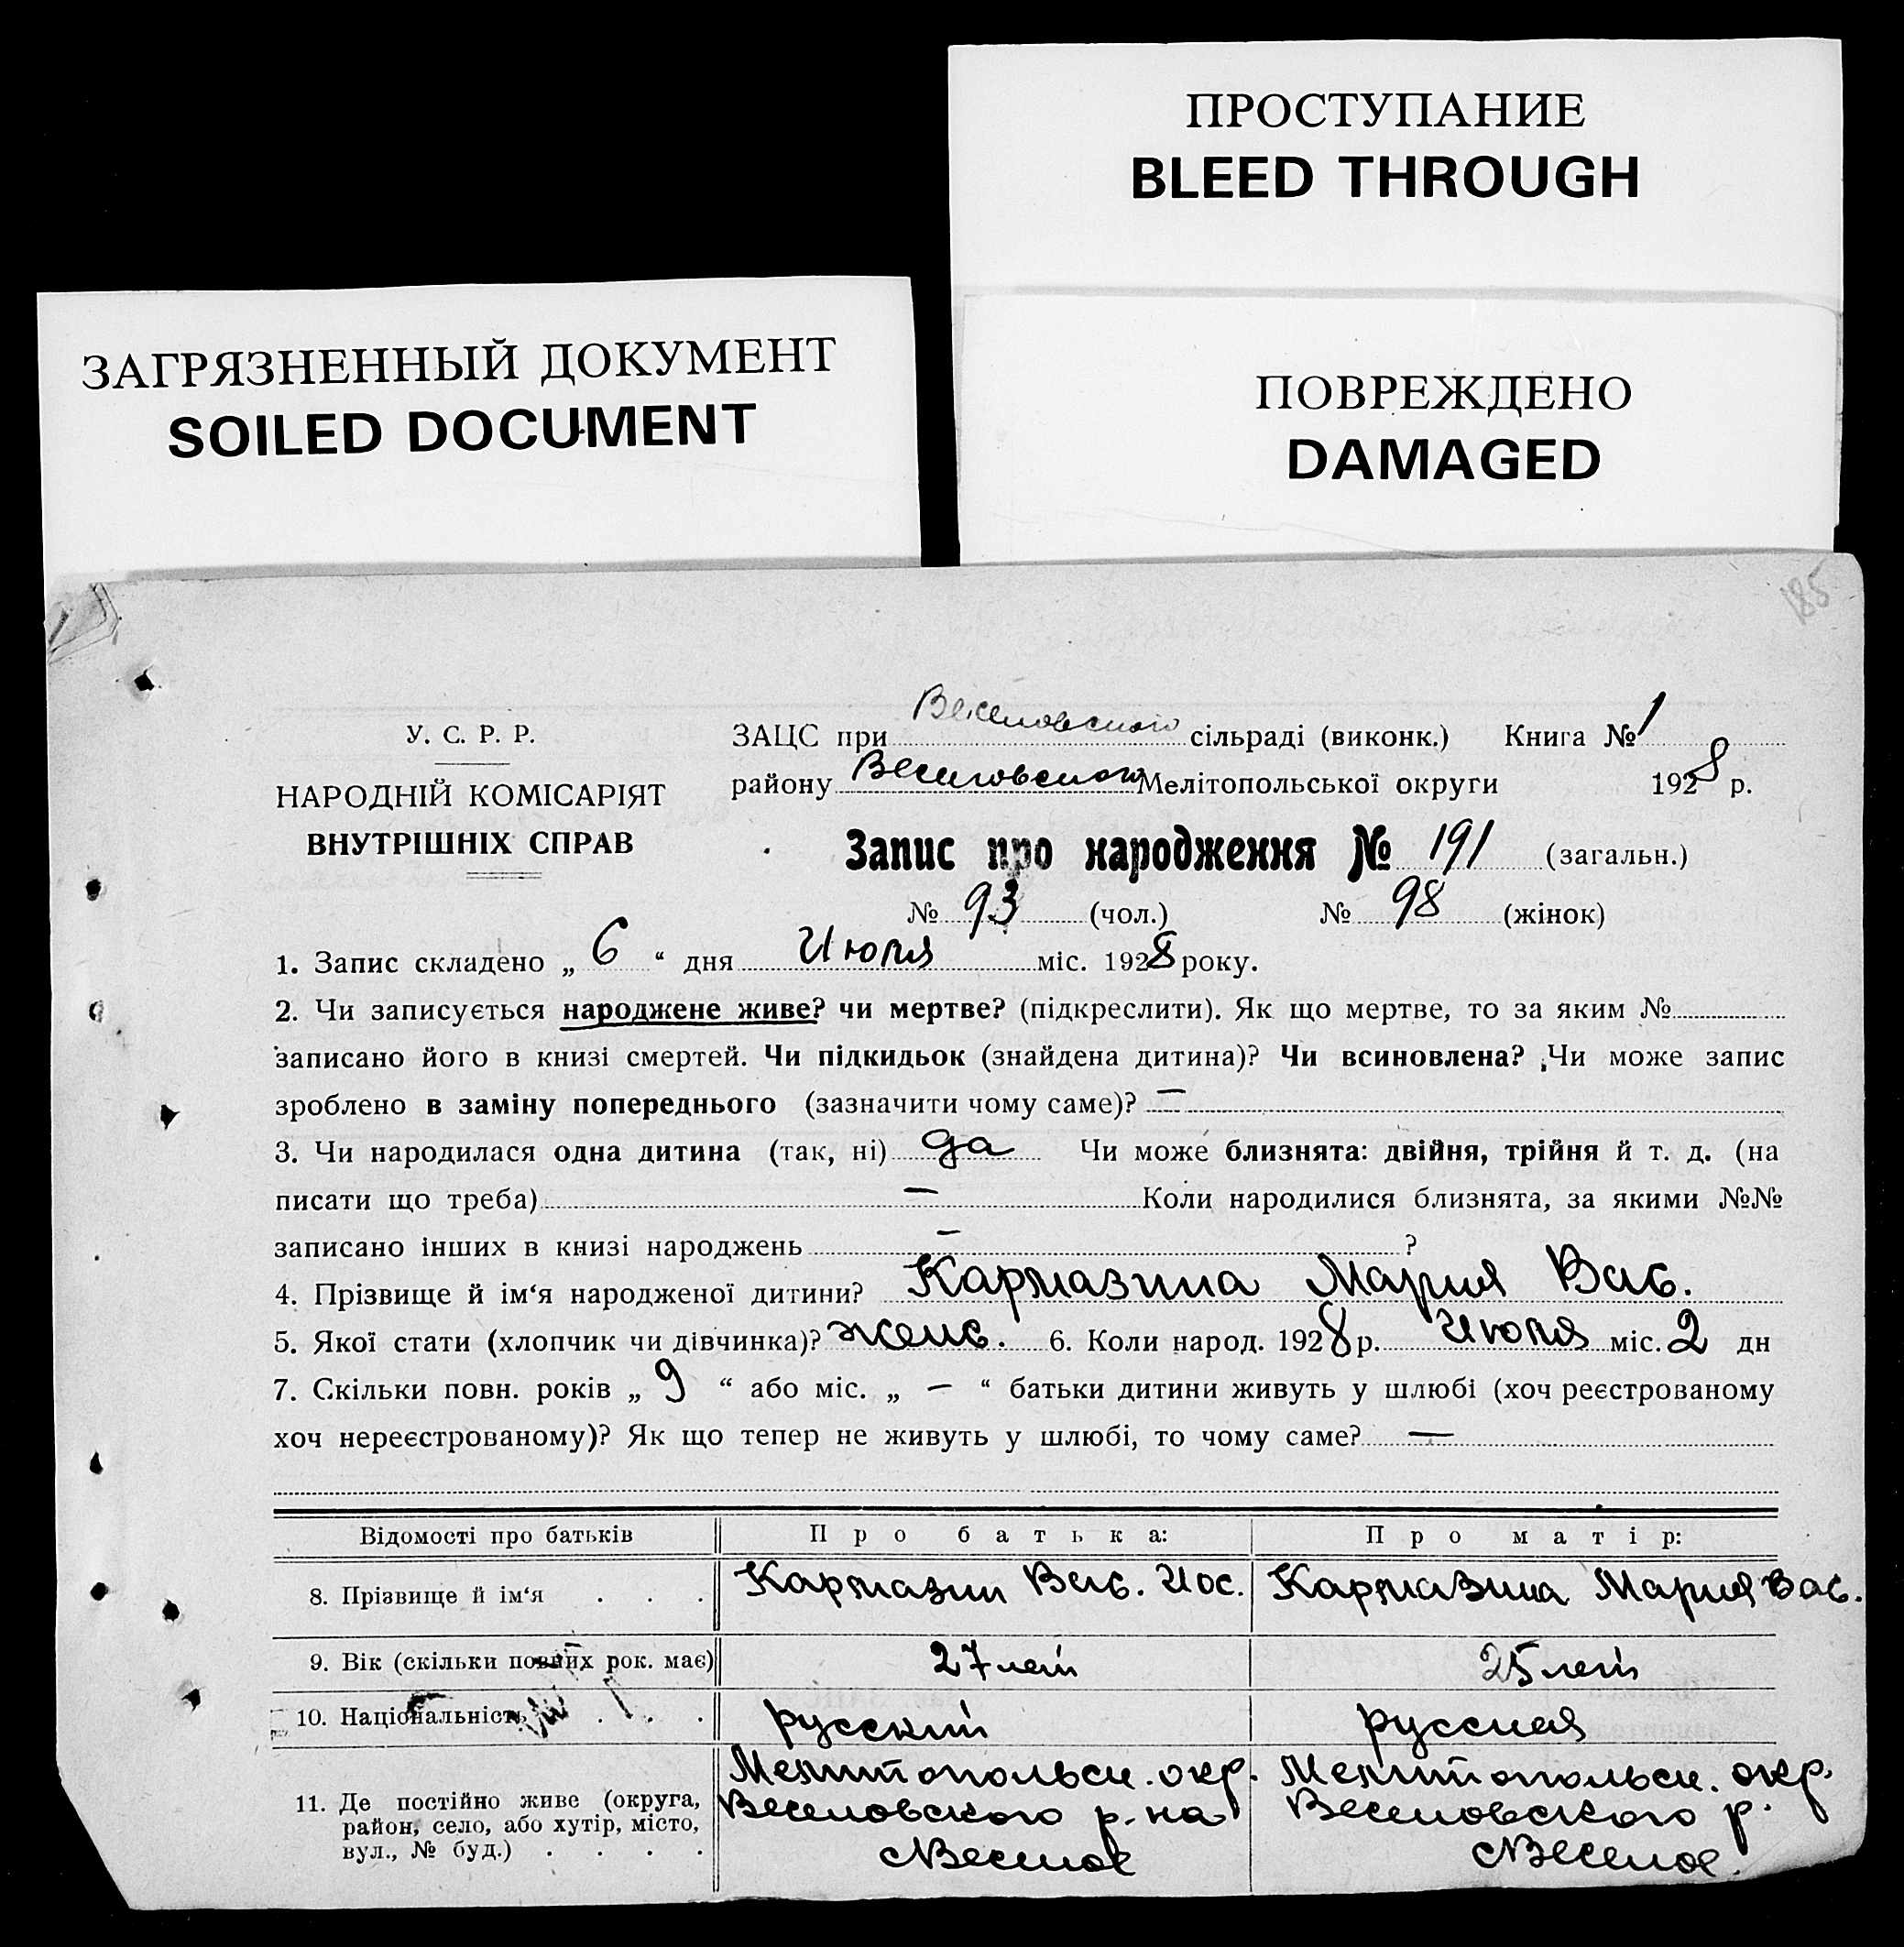 ПРОСТУПАНИЕ
BLEED THROUGH
ЗАГРЯЗНЕННЫЙ ДОКУМЕНТ
SOILED DOCUMENT
ПОВРЕЖДЕНО
DAMAGED
185
У. С. Р. Р.
НАРОДНІЙ КОМІСАРІЯТ
ВНУТРІШНІХ СПРАВ
ЗАЦС при Веселовского сільраді (виконк.) Книга № 1
району Веселовского Мелітопольської округи 1928 р.
Запис про народження № 191 (загальн.)
№ 93 (чол.) № 98 (жінок)
1. Запис складено „ 6 “ дня Июля міс. 1928 року.
2. Чи записується народжене живе? чи мертве? (підкреслити). Як що мертве, то за яким №
записано його в книзі смертей. Чи підкидьок (знайдена дитина)? Чи всиновлена? Чи може запис
зроблено в заміну попереднього (зазначити чому саме)? —
3. Чи народилася одна дитина (так, ні) да Чи може близнята: двійня, трійня й т. д. (на
писати що треба) — Коли народилися близнята, за якими №№
записано інших в книзі народжень — ?
4. Прізвище й ім‘я народженої дитини? Кармазина Мария Вас.
5. Якої стати (хлопчик чи дівчинка)? женс. 6. Коли народ. 1928 р. Июля міс. 2 дн
7. Скільки повн. років „ 9 “ або міс. „ — “ батьки дитини живуть у шлюбі (хоч реєстрованому
хоч нереєстрованому)? Як що тепер не живуть у шлюбі, то чому саме? —
Відомості про батьків Про батька: Про матір:
8. Прізвище й ім‘я . . . Кармазин Вас. Иос. Кармазина Мария Вас.
9. Вік (скільки повних рок. має) 27 лет 25 лет
10. Національність . . . русский русская
11. Де постійно живе (округа,
район, село, або хутір, місто,
вул., № буд.) . . . .
Мелитопольск. окр.
Веселовского р-на
с Веселое
Мелитопольск. окр.
Веселовского р.
с Веселое.